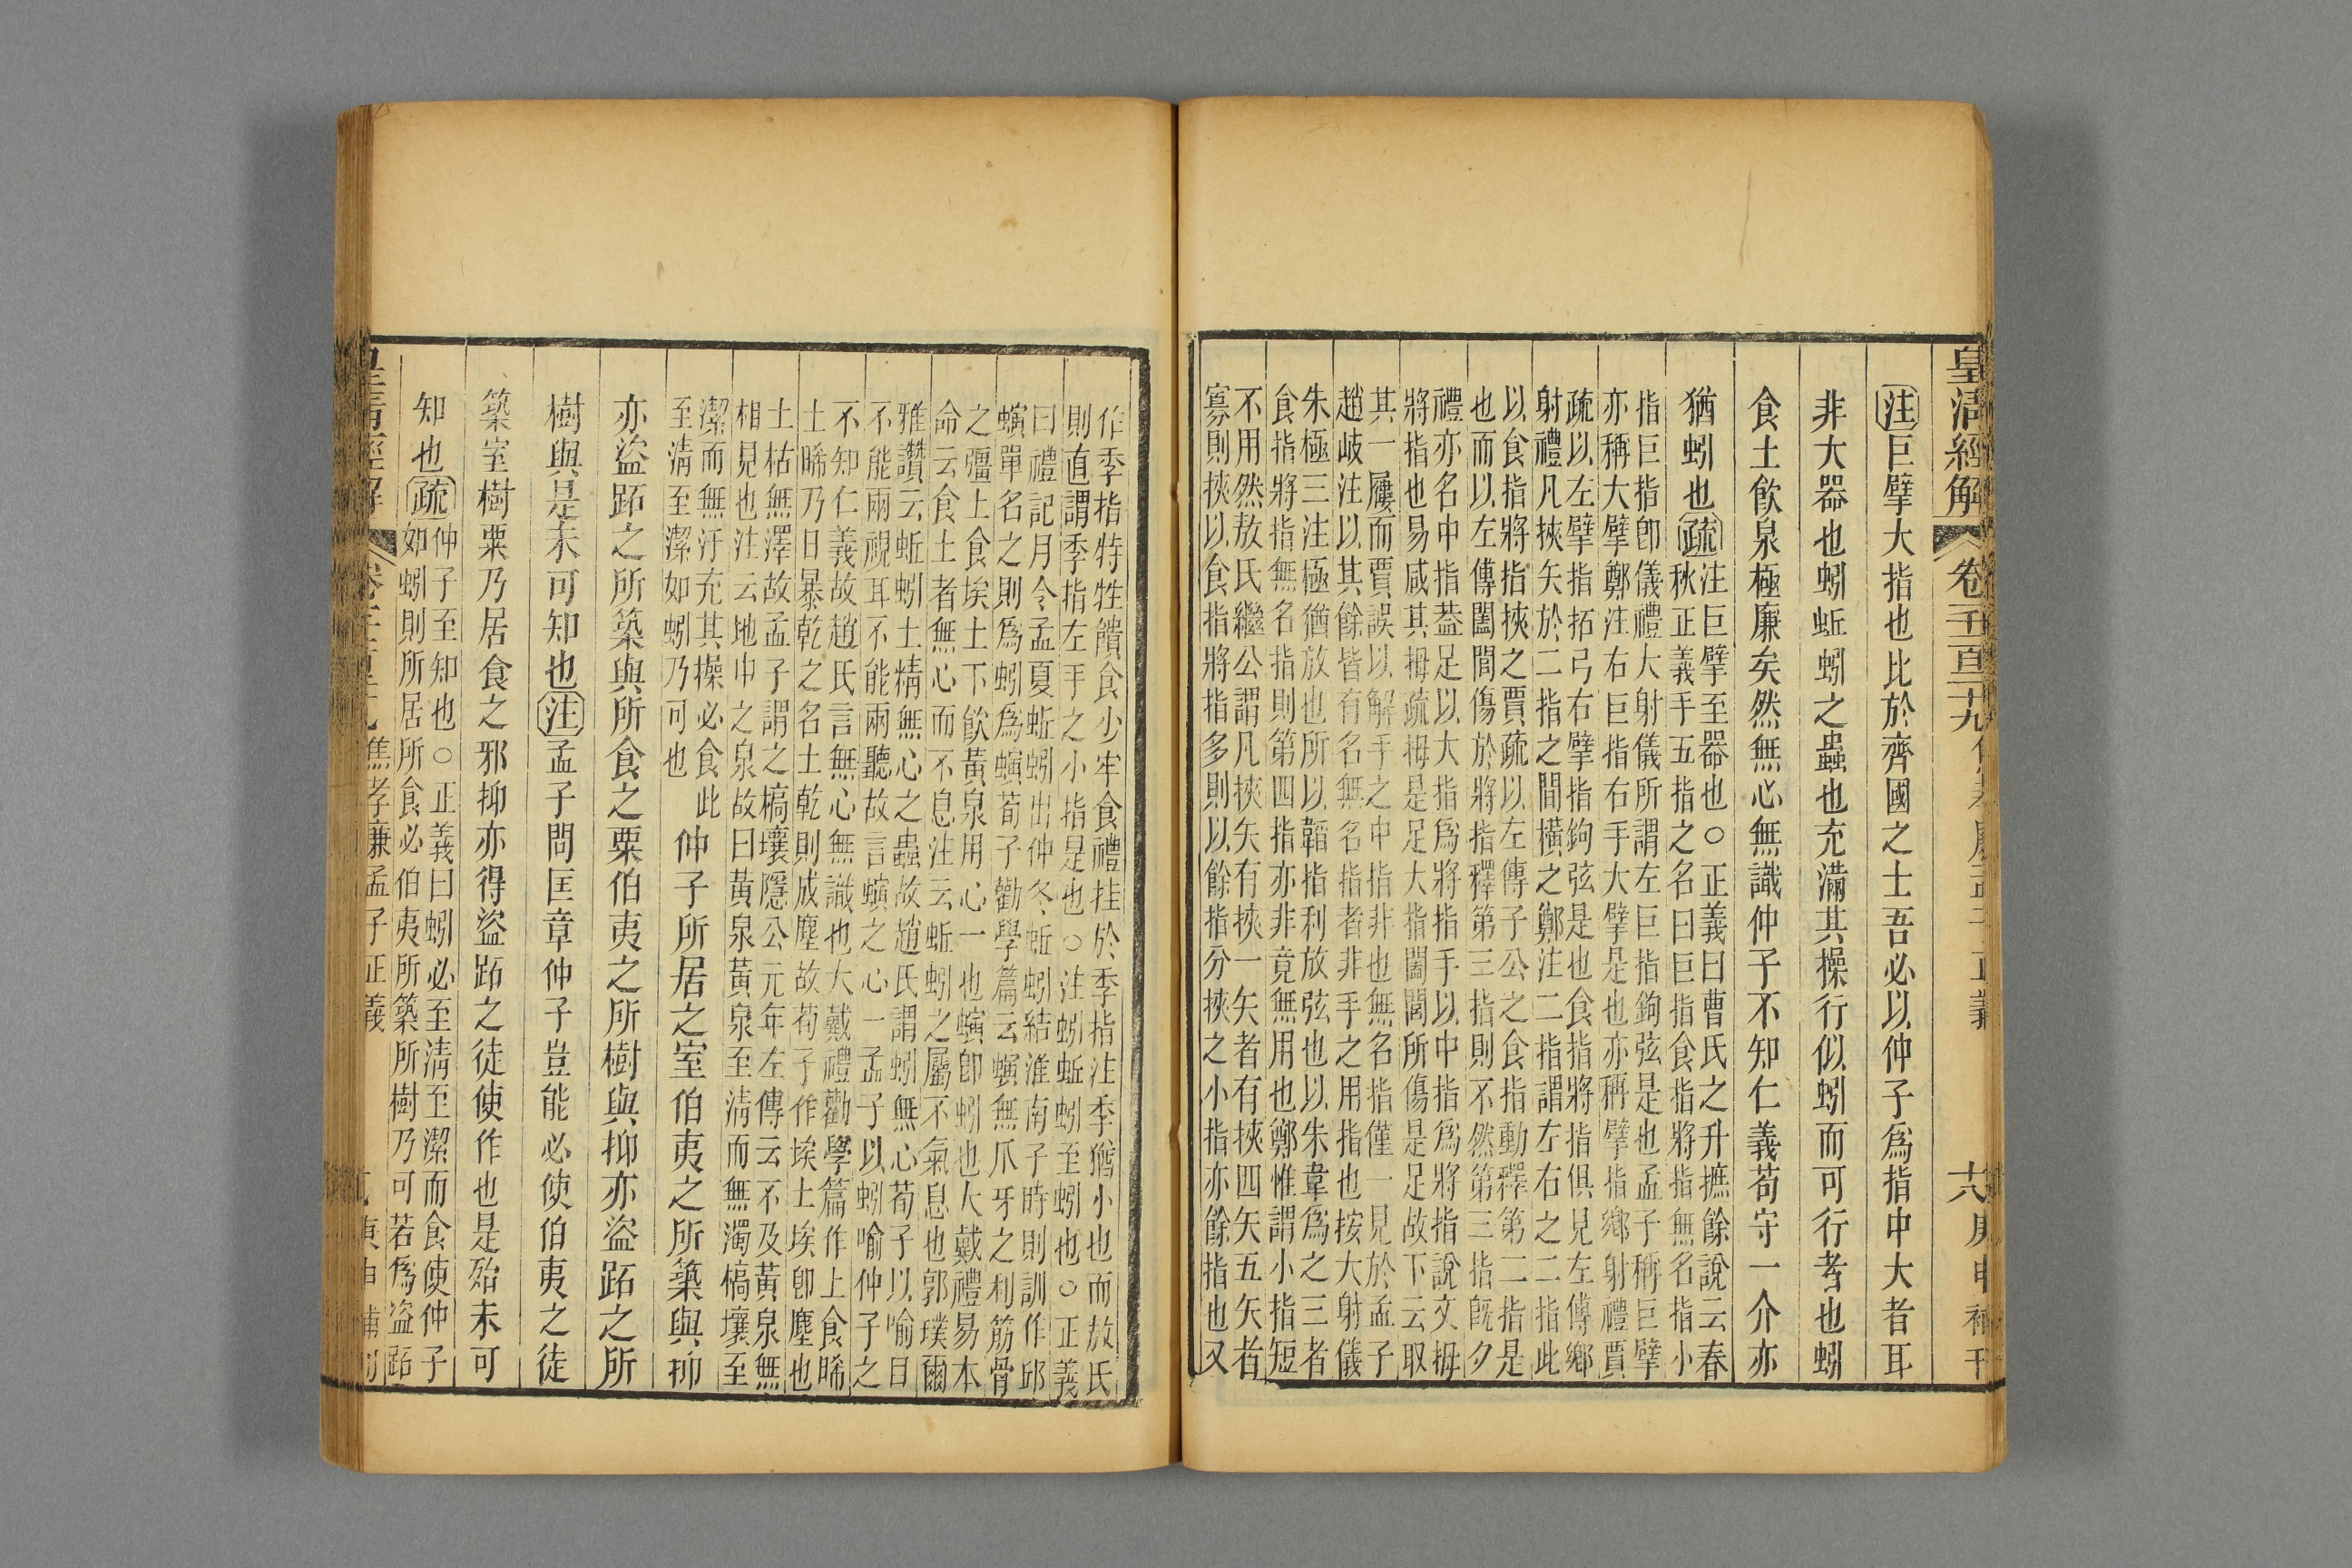 皇清經解 卷千百十九 焦孝廉孟子正義 十八 庚申補刊
注巨擘大指也比於齊國之士吾必以仲子爲指中大者耳
非大器也蚓蚯蚓之蟲也充滿其操行似蚓而可行者也蚓
食土飮泉極廉矣然無心無識仲子不知仁義苟守一介亦
猶蚓也疏
注巨擘至器也○正義曰曹氏之升摭餘說云春
秋正義手五指之名曰巨指食指將指無名指小
指巨指卽儀禮大射儀所謂左巨指鉤弦是也孟子稱巨擘
亦稱大擘鄭注右巨指右手大擘是也亦稱擘指鄉射禮賈
疏以左擘指拓弓右擘指鉤弦是也食指將指俱見左傳鄉
射禮凡挾矢於二指之間橫之鄭注二指謂左右之二指此
以食指將指挾之賈疏以左傳子公之食指動釋第二指是
也而以左傳闔閭傷於將指釋第三指則不然第三指旣夕
禮亦名中指蓋足以大指爲將指手以中指爲將指說文拇
將指也易咸其拇疏拇是足大指闔閭所傷是足故下云取
其一屨而賈誤以解手之中指非也無名指僅一見於孟子
趙岐注以其餘皆有名無名指者非手之用指也按大射儀
朱極三注極猶放也所以韜指利放弦也以朱韋爲之三者
食指將指無名指則第四指亦非竟無用也鄭惟謂小指短
不用然敖氏繼公謂凡挾矢有挾一矢者有挾四矢五矢者
寡則挾以食指將指多則以餘指分挾之小指亦餘指也又
作季指特牲饋食少牢食禮挂於季指注季猶小也而敖氏
則直謂季指左手之小指是也○注蚓蚯蚓至蚓也○正義
曰禮記月令孟夏蚯蚓出仲冬蚯蚓結淮南子時則訓作邱
螾單名之則爲蚓爲螾荀子勸學篇云螾無爪牙之利筋骨
之彊上食埃土下飮黃泉用心一也螾卽蚓也大戴禮易本
命云食土者無心而不息注云蚯蚓之屬不氣息也郭璞爾
雅讚云蚯蚓土精無心之蟲故趙氏謂蚓無心荀子以喻目
不能兩視耳不能兩聽故言螾之心一孟子以蚓喻仲子之
不知仁義故趙氏言無心無識也大戴禮勸學篇作上食晞
土晞乃日暴乾之名土乾則成塵故荀子作埃土埃卽塵也
土枯無澤故孟子謂之槁壤隱公元年左傳云不及黃泉無
相見也注云地中之泉故曰黃泉黃泉至淸而無濁槁壤至
潔而無汙充其操必食此
至淸至潔如蚓乃可也
仲子所居之室伯夷之所築與抑
亦盜跖之所築與所食之粟伯夷之所樹與抑亦盜跖之所
樹與是未可知也注孟子問匡章仲子豈能必使伯夷之徒
築室樹粟乃居食之邪抑亦得盜跖之徒使作也是殆未可
知也疏
仲子至知也○正義曰蚓必至淸至潔而食使仲子
如蚓則所居所食必伯夷所築所樹乃可若爲盜跖
皇清經解 焦孝廉孟子正義 庚申補刊